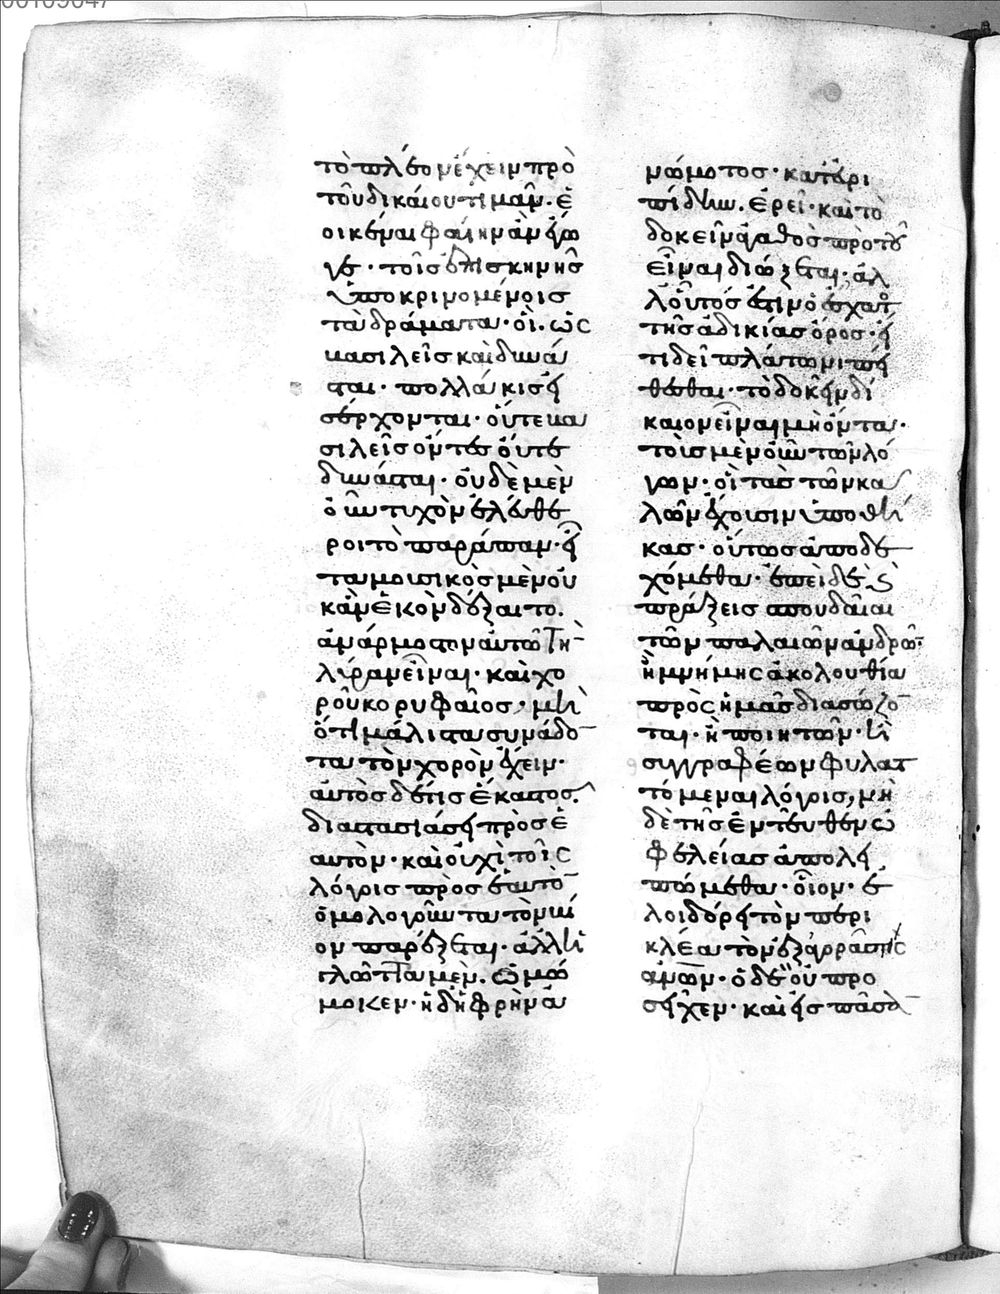 τὸ πλέον ἔχειν πρὸ
τοῦ δικαίου τιμᾶν. ἐ
οικέναι φαίην ἂν ἔγω
γε· τοῖς ἐπὶ σκηνῆς
ὑποκρινομένοις
τὰ δράματα· οἳ ὡς
βασιλεῖς καὶ δυνά
σται· πολλάκις εἰ
σέρχονται· οὔτε βα
σιλεῖς ὄντες οὔτε
δυνάσται· οὐδὲ μὲν
οὖν τυχὸν ἐλεύθε
ροι τὸ παράπαν· εἶ
τα μουσικὸς μὲν οὐ
κ ἂν ἑκὼν δέξαιτο.
ἀνάρμοστον αὐτῷ τὴν
λύραν εἶναι· καὶ χο
ροῦ κορυφαῖος· μὴ
ὅτι μάλιστα συνᾴδον
τα τὸν χορὸν ἔχειν·
αὐτὸς δέ τις ἕκαστος
διαστασιάσει πρὸς ἑ
αυτὸν· καὶ οὐχὶ τοῖς
λόγοις πρὸς ἑαυτὸν
ὁμολογοῦντα τὸν βί
ον παρέξεται· ἀλλ' ἡ
γλῶττα μὲν ὀμώ
μοκεν· ἡ δὲ φρὴν ἀ
νώμοτος· κατ' Εὐρι
πίδην ἐρεῖ· καὶ τὸ
δοκεῖν ἀγαθὸς πρὸ τοῦ
εἶναι διώξεται· ἀλ
λ' οὗτός ἐστιν ὁ ἔσχατος
τῆς ἀδικίας ὅρος· εἴ
τι δεῖ Πλάτωνι πεί
θεσθαι· τὸ δοκεῖν δί
καιον εἶναι μὴ ὄντα·
τοὺς μὲν οὖν τῶν λό
γων· οἳ τὰς τῶν κα
λῶν ἔχουσιν ὑποθή
κας· οὕτως ἀποδε
χόμεθα· ἐπεὶ δὲ καὶ
πράξεις σπουδαῖαι
τῶν παλαιῶν ἀνδρῶν·
ἢ μνήμης ἀκολουθίᾳ
πρὸς ἡμᾶς διασώζον
ται· ἢ ποιητῶν· ἢ
συγγραφέων φυλατ
τόμεναι λόγοις, μη
δὲ τῆς ἐντεῦθεν ὠ
φελείας ἀπολει
πώμεθα· οἷον· ἐ
λοιδόρει τὸν Περι
κλέα τὸν ἐξ ἀγορᾶς τις
ἀνθρώπων· ὁ δὲ οὐ προ
σεῖχεν· καὶ εἰς πᾶσαν